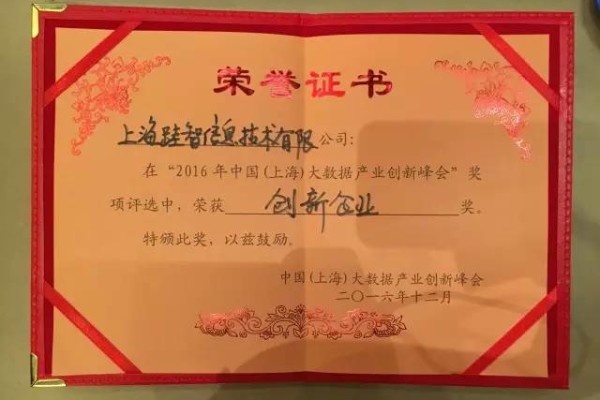 荣誉证书
上海跬智信息技术有限公司：
在“2016年中国(上海)大数据产业创新峰会”奖
项评选中，荣获创新企业奖。
特颁此奖，以兹鼓励。
中国(上海)大数据产业创新峰会
二〇一六年十二月